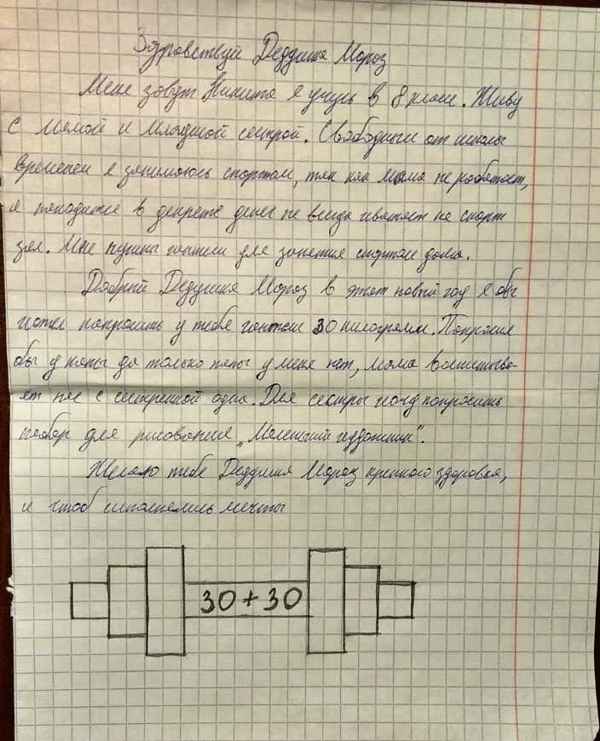 Здравствуй Деддушка Мороз
Меня зовут Никита я учусь в 8 класе. Живу
с мамой и младшой сестрой. Свободным от школы
временем я занемаюсь спортом, так как мама не работает,
и находится в декрете денег не всегда хватает на спорт
зал. Мне нужны гантели для занятия спортом дома.
Добрый Дедушка Мороз в этот новый год я бы
хотел попросить у тебя гантели 30 килограмм. Попросил
обы у папы да только папы у меня нет, мама воспитыва-
ет нас с сестрёнкой одна. Для сестры хочу попросить
набор для рисования „Маленький художник".
Желаю тебе Деддушка Мороз крепкого здоровья,
и чтоб исполнелись мечты
30 + 30